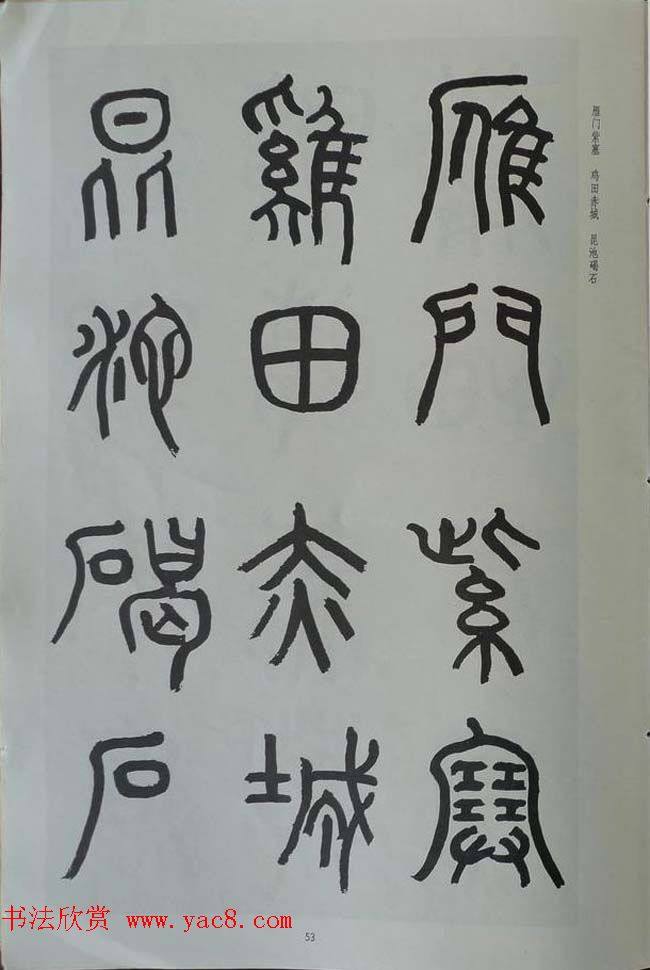 雁門紫塞
雞田赤城
昆池碣石
雁门紫塞 鸡田赤城 昆池碣石
书法欣赏 www.yac8.com
53